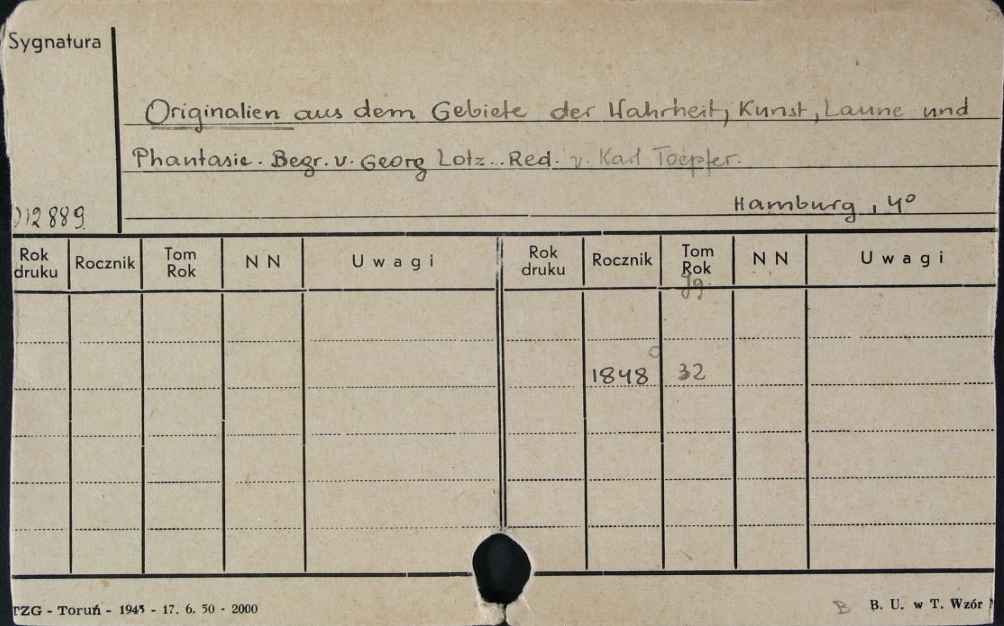 Sygnatura
Originalien aus dem Gebiete der Wahrheit, Kunst, Laune und
Phantasie. Begr. v. Georg Lotz.. Red. v. Karl Toepfer.
Hamburg, 4°
012889
Rok druku Rocznik Tom Rok NN Uwagi Rok druku Rocznik Tom Rok NN Uwagi
Jg.
1848 32
TZG - Toruń - 1945 - 17. 6. 50 - 2000
B B. U. w T. Wzór